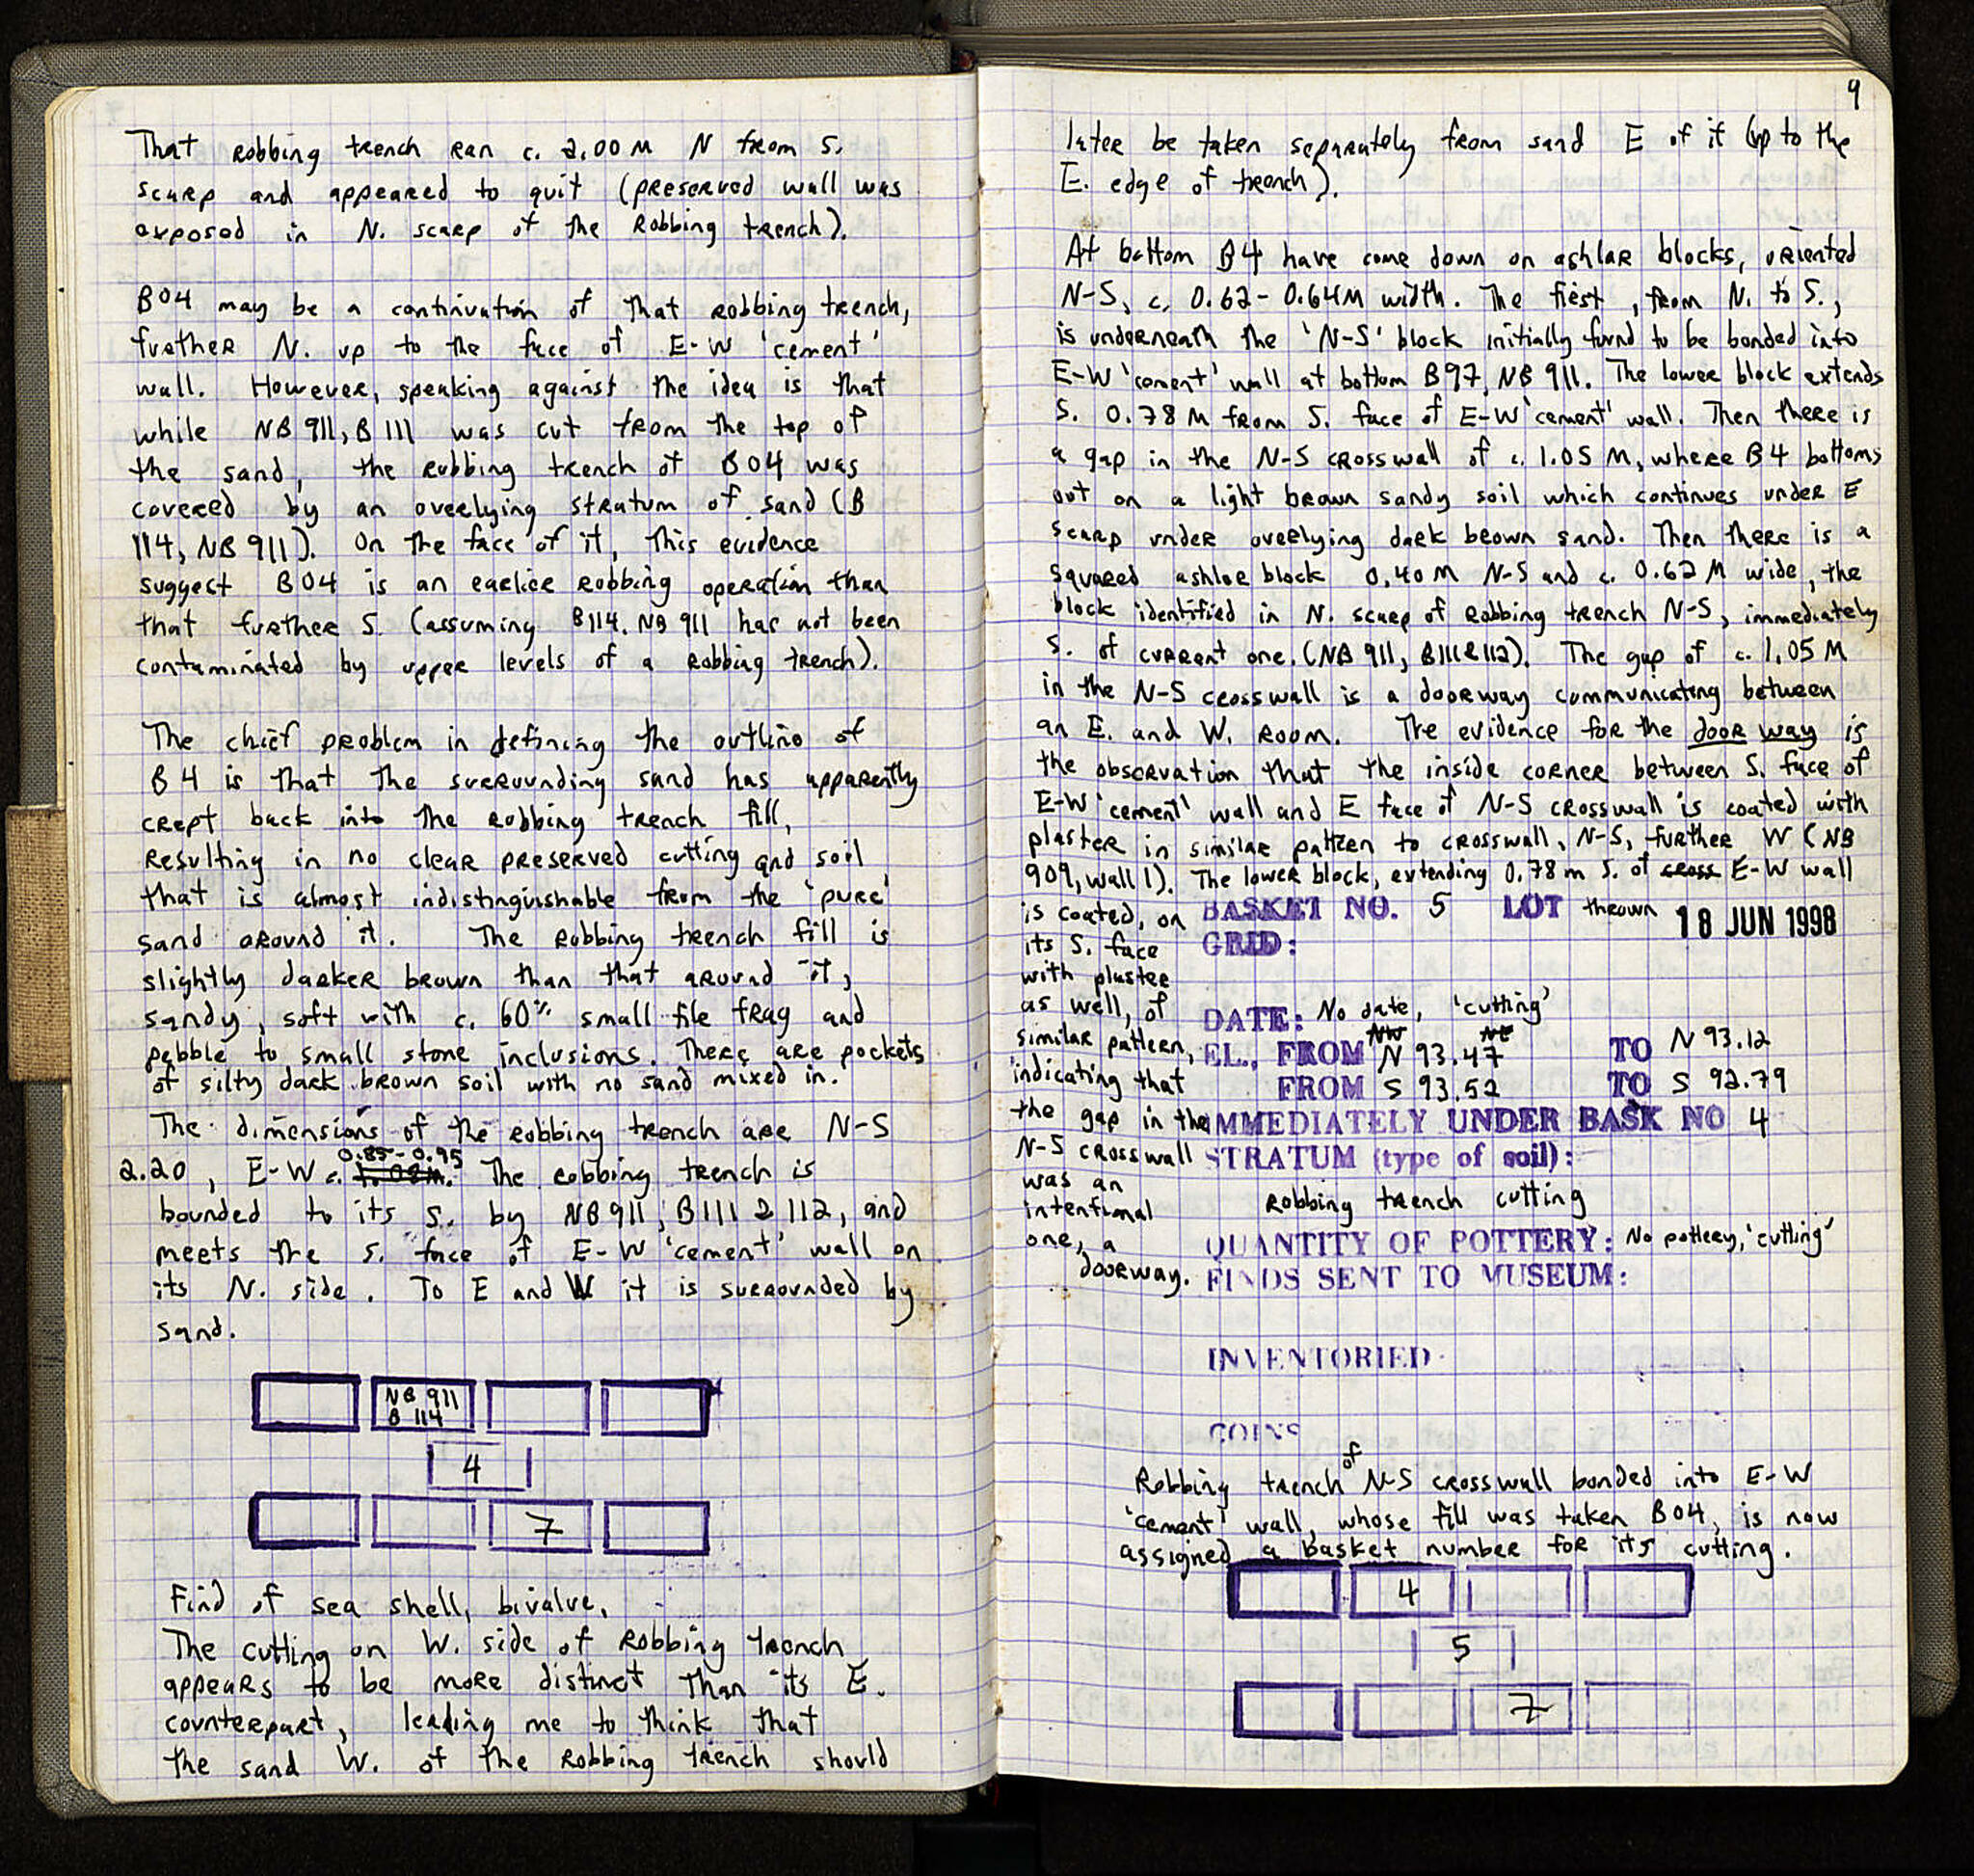 That robbing trench ran c. 2.00 M N from S.
scarp and appeared to quit (preserved wall was
exposed in N. scarp of the Robbing trench).
B04 may be a continuation of that robbing trench,
further N. up to the face of E-W 'cement'
wall. However, speaking against the idea is that
while NB 911, B 111 was cut from the top of
the sand, the robbing trench of B04 was
covered by an overlying stratum of sand (B
114, NB 911). On the face of it, this evidence
suggest B04 is an earlier robbing operation than
that further S. (assuming B114. NB 911 has not been
contaminated by upper levels of a robbing trench).
The chief problem in defining the outline of
B 4 is that the surrounding sand has apparently
crept back into the robbing trench fill,
resulting in no clear preserved cutting and soil
that is almost indistinguishable from the 'pure'
sand around it. The robbing trench fill is
slightly darker brown than that around it,
sandy, soft with c. 60% small tile frag and
pebble to small stone inclusions. There are pockets
of silty dark brown soil with no sand mixed in.
The dimensions of the robbing trench are N-S
0.85-0.95
2.20, E-W c. 1.02m. The robbing trench is
bounded to its S. by NB 911, B111 & 112, and
meets the S. face of E-W 'cement' wall on
its N. side. To E and W it is surrounded by
sand.
NB 911
B 114
4
7
Find of sea shell, bivalve.
The cutting on W. side of Robbing trench
appears to be more distinct than its E.
counterpart, leading me to think that
the sand W. of the Robbing trench should
9
later be taken separately from sand E of it (up to the
E. edge of trench).
At bottom B4 have come down on ashlar blocks, oriented
N-S, c. 0.62-0.64M width. The first, from N. to S.,
is underneath the 'N-S' block initially found to be bonded into
E-W 'cement' wall at bottom B97, NB 911. The lower block extends
S. 0.78 M from S. face of E-W 'cement' wall. Then there is
a gap in the N-S crosswall of c. 1.05 M, where B4 bottoms
out on a light brown sandy soil which continues under E
scarp under overlying dark brown sand. Then there is a
squared ashlar block 0.40 M N-S and c. 0.62 M wide, the
block identified in N. scarp of Robbing trench N-S, immediately
S. of current one. (NB 911, B111 & 112). The gap of c. 1.05 M
in the N-S crosswall is a doorway communicating between
an E. and W. room. The evidence for the door way is
the observation that the inside corner between S. face of
E-W 'cement' wall and E face of N-S crosswall is coated with
plaster in similar pattern to crosswall, N-S, further W (NB
909, wall 1). The lower block, extending 0.78 m S. of cross E-W wall
is coated, on
its S. face
with plaster
as well, of
similar pattern,
indicating that
the gap in the
N-S crosswall
was an
intentional
one, a
doorway.
BASKET NO. 5 LOT thrown 18 JUN 1998
GRID:
DATE: No date, 'cutting'
NW NE
EL., FROM N 93.47 TO N 93.12
FROM S 93.52 TO S 92.79
IMMEDIATELY UNDER BASK NO 4
STRATUM (type of soil):
Robbing trench cutting
QUANTITY OF POTTERY: No pottery, 'cutting'
FINDS SENT TO MUSEUM:
INVENTORIED
COINS
of
Robbing trench N-S crosswall bonded into E-W
'cement' wall, whose fill was taken B04, is now
assigned a basket number for its cutting.
4
5
7